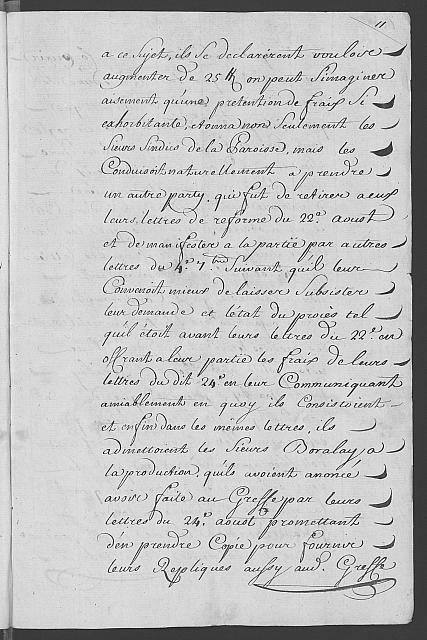 11
a ce sujet, ils se declarérent vouloir
augmenter de 25 ℔ on peut s'imaginer
aisement qu'une pretention de fraix si
exhorbitante, etonna non seulement les
Sieurs Sindics de la Paroisse, mais les
Conduisoit naturellement a prendre
un autre party, qui fut de retirer a eux
leurs lettres de reforme du 22.e aoust
et de manifester a la partie par autres
lettres du 4.e 7.bre Suivant qu'il leur
Convenoit mieux de laisser Subsister
leur demande et l'etat du procès tel
qu'il étoit avant leurs lettres du 22.e en
offrant a leur partie les fraix de leurs
lettres du dit 24.e en leur Communiquant
amiablement en quoy ils Consistoient
et enfin dans les mêmes lettres, ils
admettoient les Sieurs Boralay, a
la production, qu'ils avoient anoncé
avoir faite au Greffe par leurs
lettres du 24.e aoust promettant
d'en prendre Copie pour fournir
leurs Repliques aussy aud. Greffe